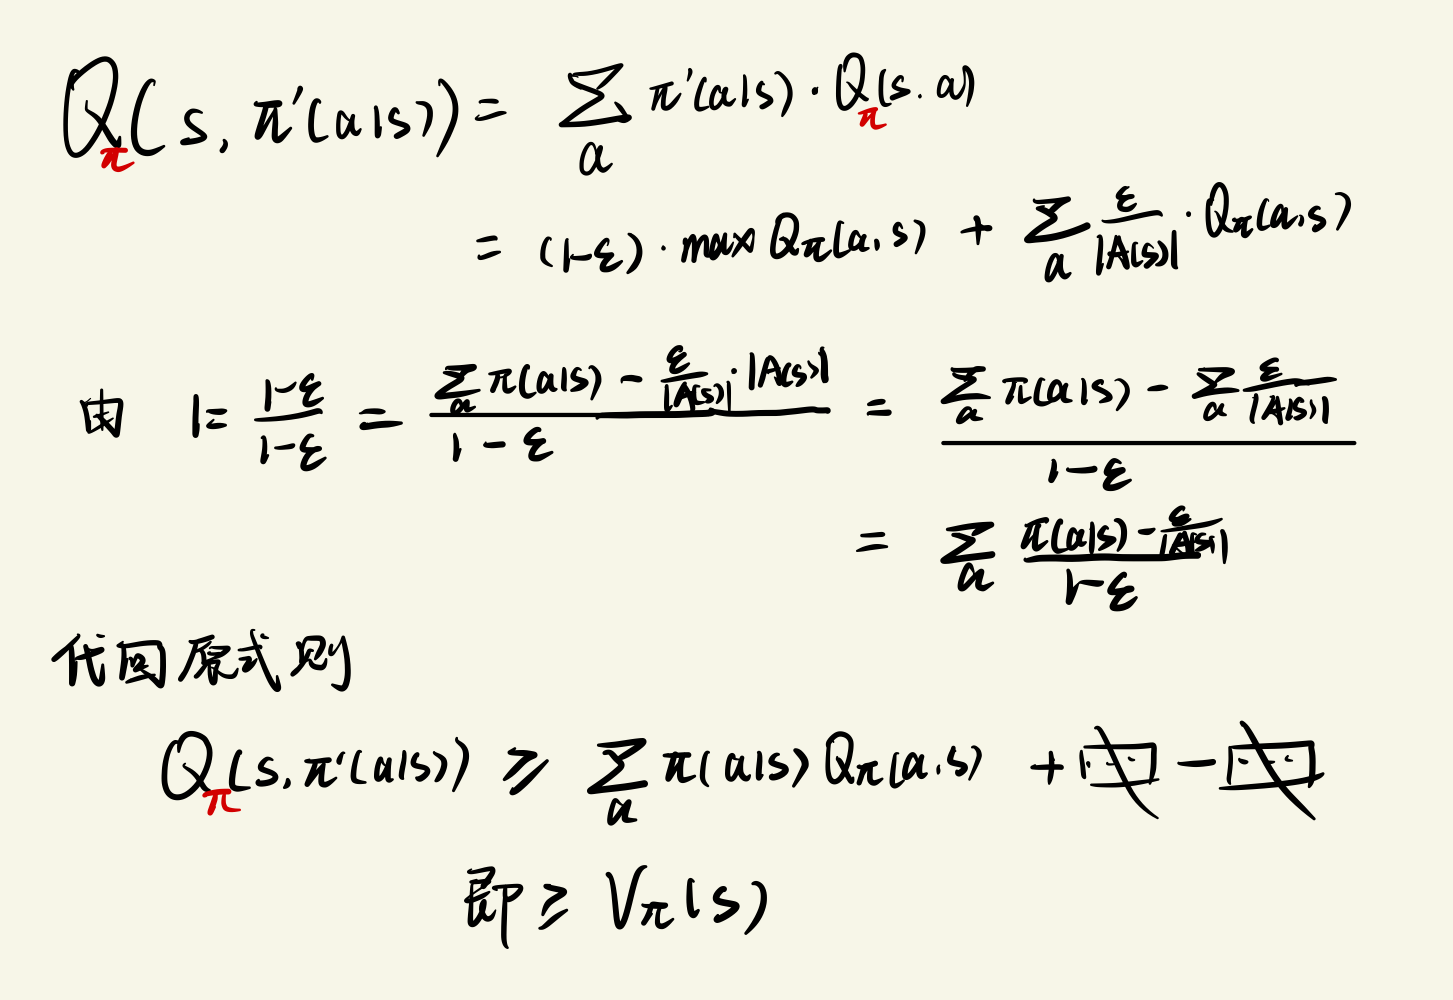 Q_π(s, π'(a|s)) = ∑_a π'(a|s) · Q_π(s. a)
= (1-ε) · max Q_π(a, s) + ∑_a ε/|A(s)| · Q_π(a,s)
由 1 = (1-ε)/(1-ε) = (∑_a π(a|s) - ε/|A(s)| · |A(s)|)/(1-ε) = (∑_a π(a|s) - ∑_a ε/|A(s)|)/(1-ε)
= ∑_a (π(a|s) - ε/|A(s)|)/(1-ε)
代回原式则
Q_π(s, π'(a|s)) ≥ ∑_a π(a|s) Q_π(a,s) + ... - ...
即 ≥ V_π(s)